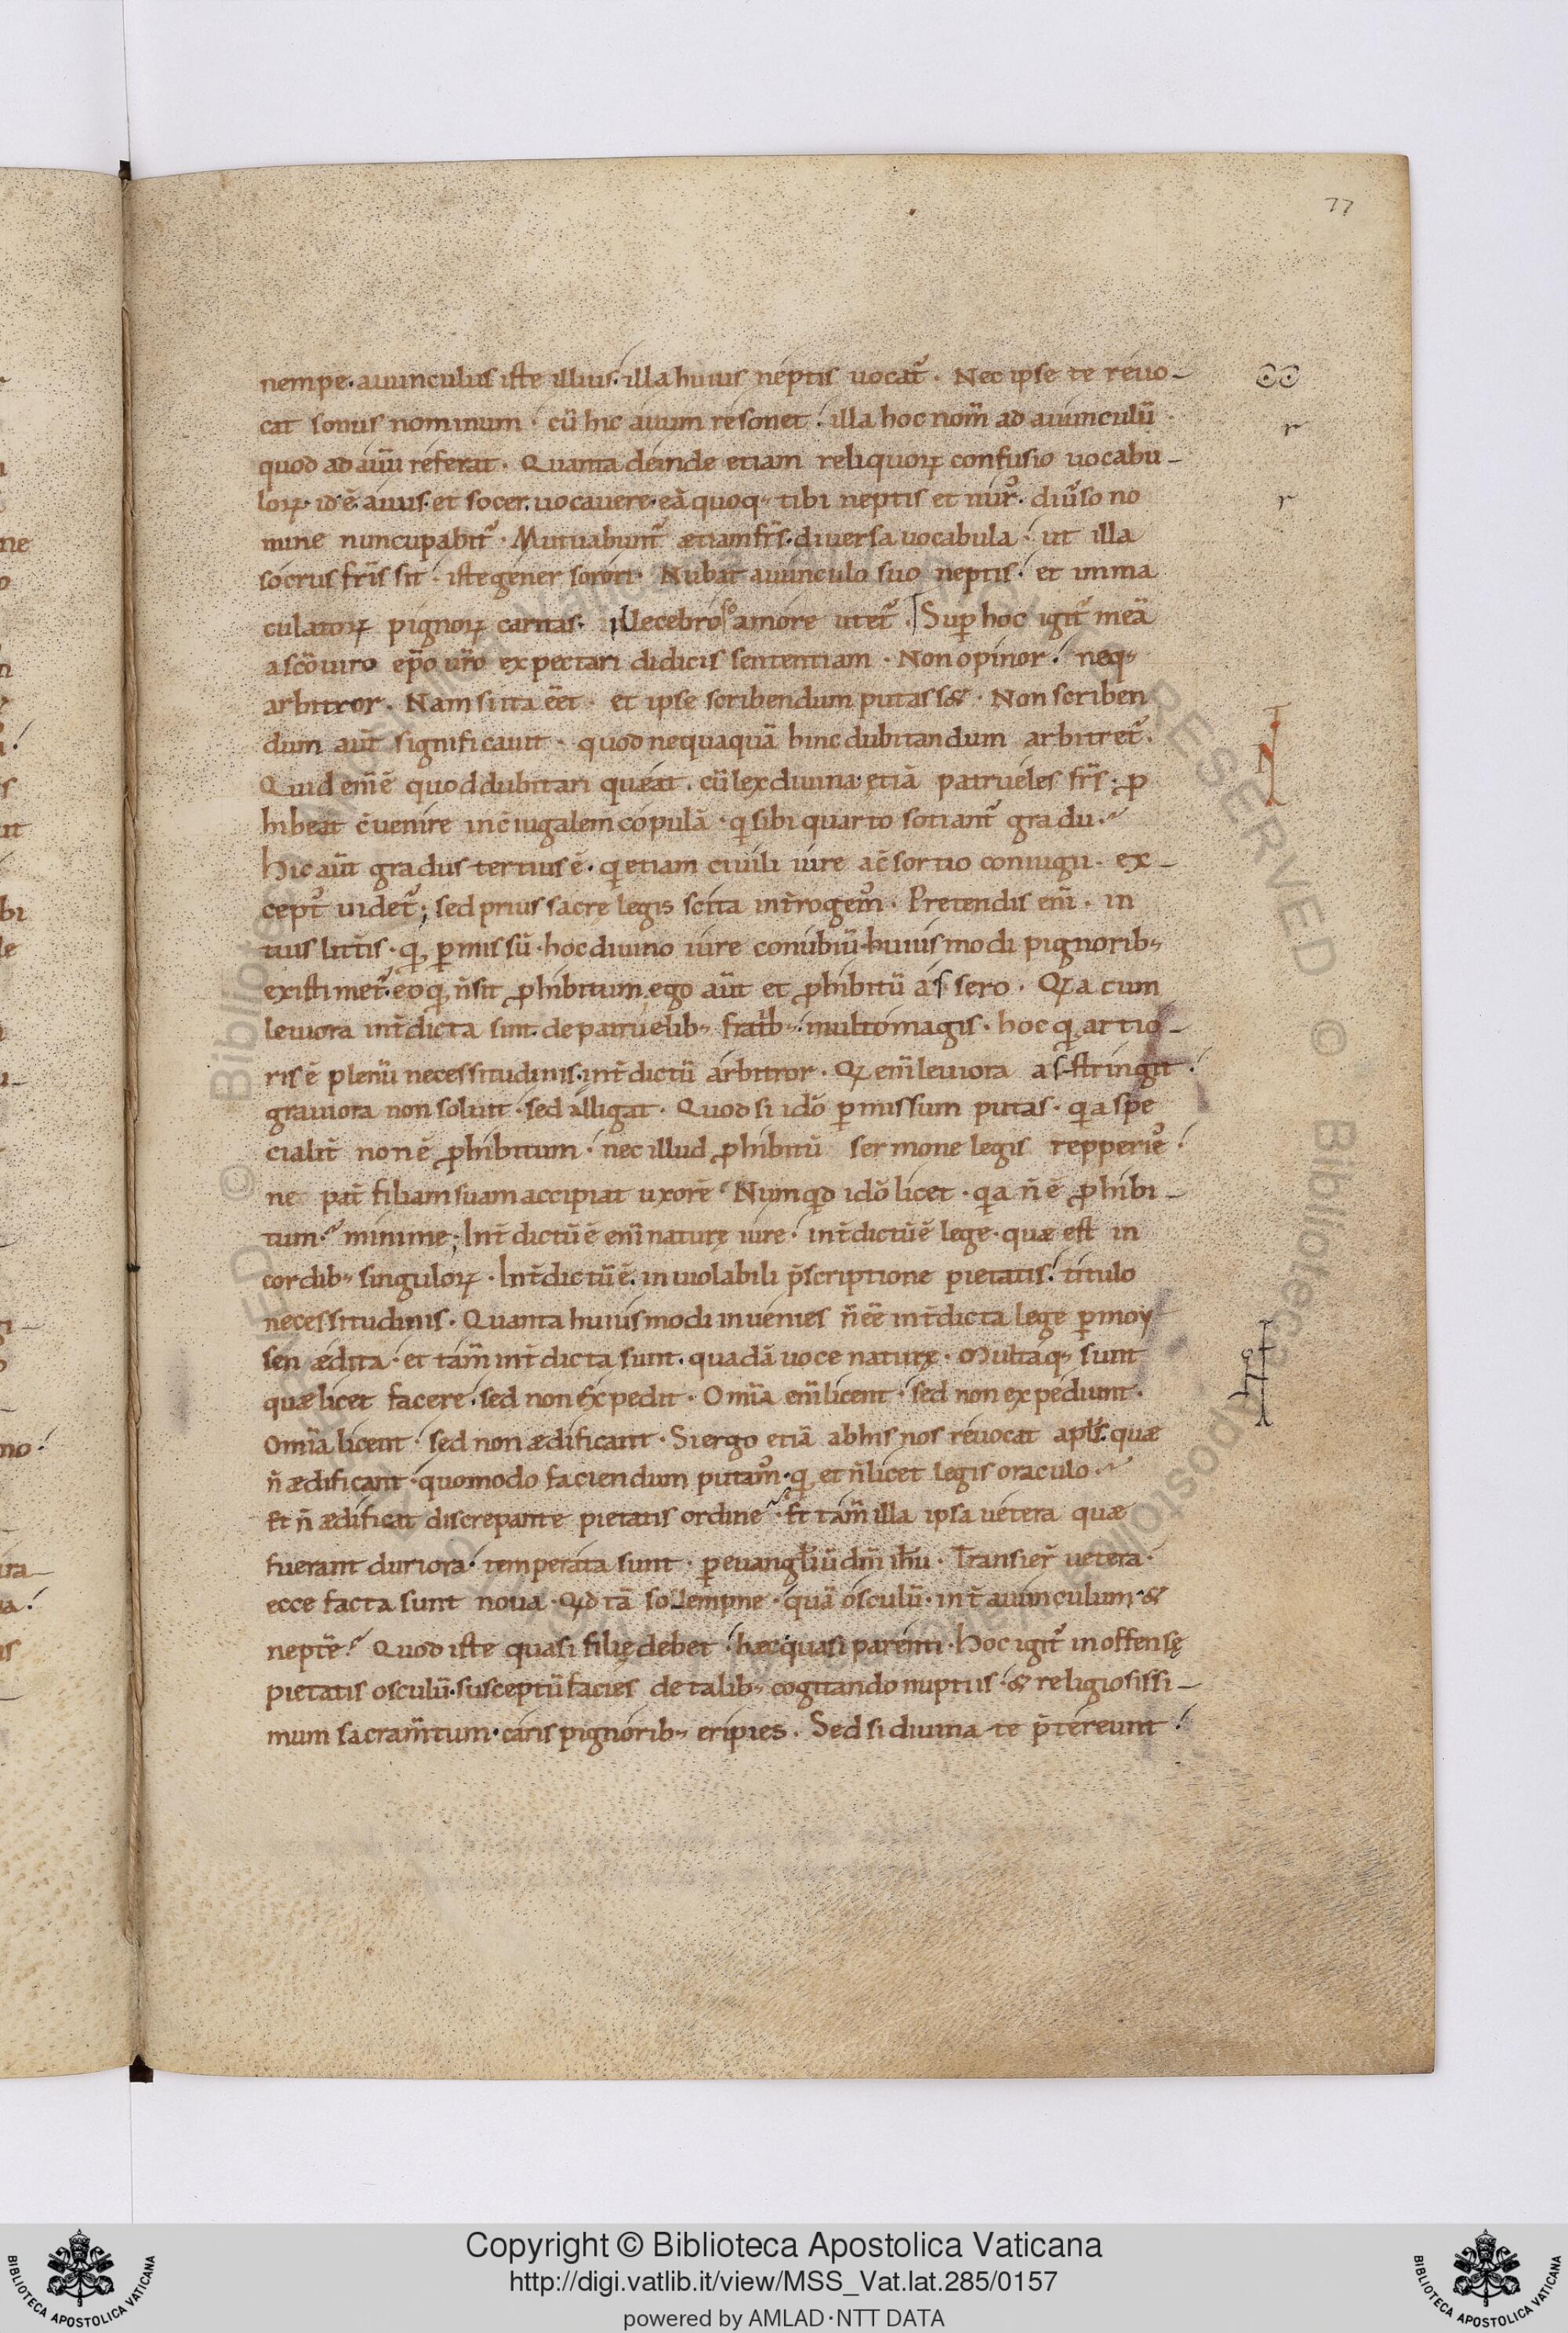 77
nempe· auunculus iste illius· illa huius neptis uocat᷑· Nec ipse te reuo-
cat sonus nominum· cū hic auum resonet· illa hoc nom̄ ad auunculū
quod ad auū referat· Quanta deinde etiam reliquoꝝ confusio uocabu-
loꝝ· id ē· auus· et socer· uocauere· eā quoq; tibi neptis et nur᷒· diu͛so no
mine nuncupabit᷑· Mutuabunt᷑ ætiam fr̄s· diuersa uocabula· ut illa
socrus fr̄is sit· iste gener sorori· Nubat auunculo suo neptis· et imma
culatoꝝ pignoꝝ caritas· illecebroso amore utet᷑· Sup̱ hoc igit᷑ meā
a sc̄o uiro ep̄o ur̄o expectari didicis sententiam· Non opinor· neq;
arbitror· Nam si ita eēt· et ipse scribendum putass&· Non scriben
dum aut̄ significauit· quod nequaquā hinc dubitandum arbitret᷑·
Quid eni ē quod dubitari queat· cū lex diuina· etiā patrueles fr̄s· ꝓ
hibeat c̄uenire in c̄iugalem copulā· qͥ sibi quarto sotiant᷑ gradu·
Hic aūt gradus tertius ē· qͥ etiam ciuili iure a c̄sortio coniugii· ex-
cept᷒ uidet᷑; sed prius sacre legis scita int̄rogem᷒· Pretendis eni· in
tuis litt̄is· qđ p̱missū· hoc diuino iure conubiū· huiusmodi pignorib;
existimet᷑· eo qđ n̄ sit ꝓhibitum· ego aūt et ꝓhibitū assero· Qͥa cum
leuiora int̄dicta sint· de patruelib; fratb;· multo magis· hoc qđ artio-
ris ē plenū necessitudinis· int̄dictū arbitror· Qͥ eni leuiora astringit·
grauiora non soluit· sed alligat· Quod si idō p̱missum putas· qͥa spe
cialit̄ non ē ꝓhibitum· nec illud ꝓhibitū sermone legis repperie᷒·
ne pat̄ filiam suam accipiat uxorē· Numqͥd idō licet· qͥa n̄ ē ꝓhibi-
tum· minime; Int̄dictū ē eni naturę iure· int̄dictū ē lege· quæ est in
cordib; singuloꝝ· Int̄dictū ē· inuiolabili p̄scriptione pietatis· titulo
necessitudinis· Quanta huiusmodi inuenies n̄ eē int̄dicta lege p̱ moy
sen ædita· et tam̄ int̄dicta sunt· quadā uoce naturę· Multaq; sunt
quæ licet facere· sed non expedit· Omīa eni licent· sed non expediunt·
Omīa licent· sed non ædificant· Si ergo etiā ab his nos reuocat apl̄s· quæ
n̄ ædificant· quomodo faciendum putam᷒· qđ et n̄ licet legis oraculo·
Et n̄ ædificat discrepante pietatis ordine· Et tam̄ illa ipsa uetera quæ
fuerant duriora· temperata sunt· p̱ euangl̄iū dn̄i ih̄u· Transier̄ uetera·
ecce facta sunt noua· Qͥd tā sollempne· quā osculū· int̄ auunculum· &
neptē· Quod iste quasi filię debet· hæc quasi parenti· Hoc igit᷑ inoffensę
pietatis osculū· susceptū facies de talib; cogitando nuptiis· & religiosissi-
mum sacram̄tum· caris pignorib; eripies· Sed si diuina te p̄tereunt·
r
r
Copyright © Biblioteca Apostolica Vaticana
http://digi.vatlib.it/view/MSS_Vat.lat.285/0157
powered by AMLAD·NTT DATA
BIBLIOTECA APOSTOLICA VATICANA
BIBLIOTECA APOSTOLICA VATICANA